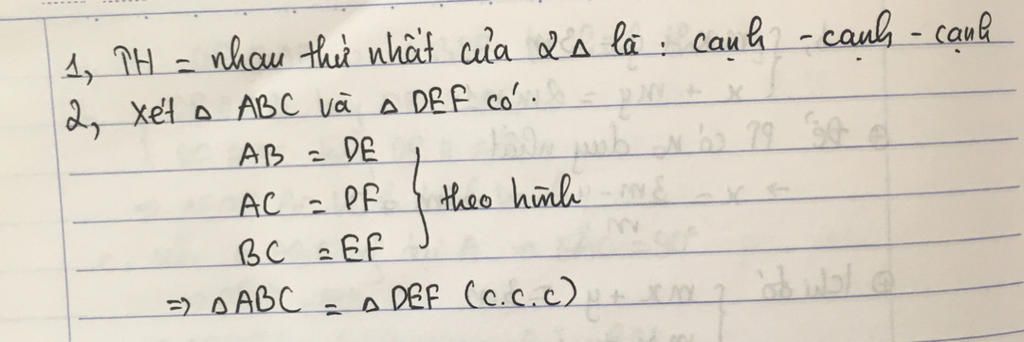 1, TH = nhau thứ nhất của 2 Δ là : cạnh - cạnh - cạnh
2, Xét Δ ABC và Δ DEF có:
AB = DE
AC = DF } theo hình
BC = EF
=> Δ ABC = Δ DEF (c.c.c)